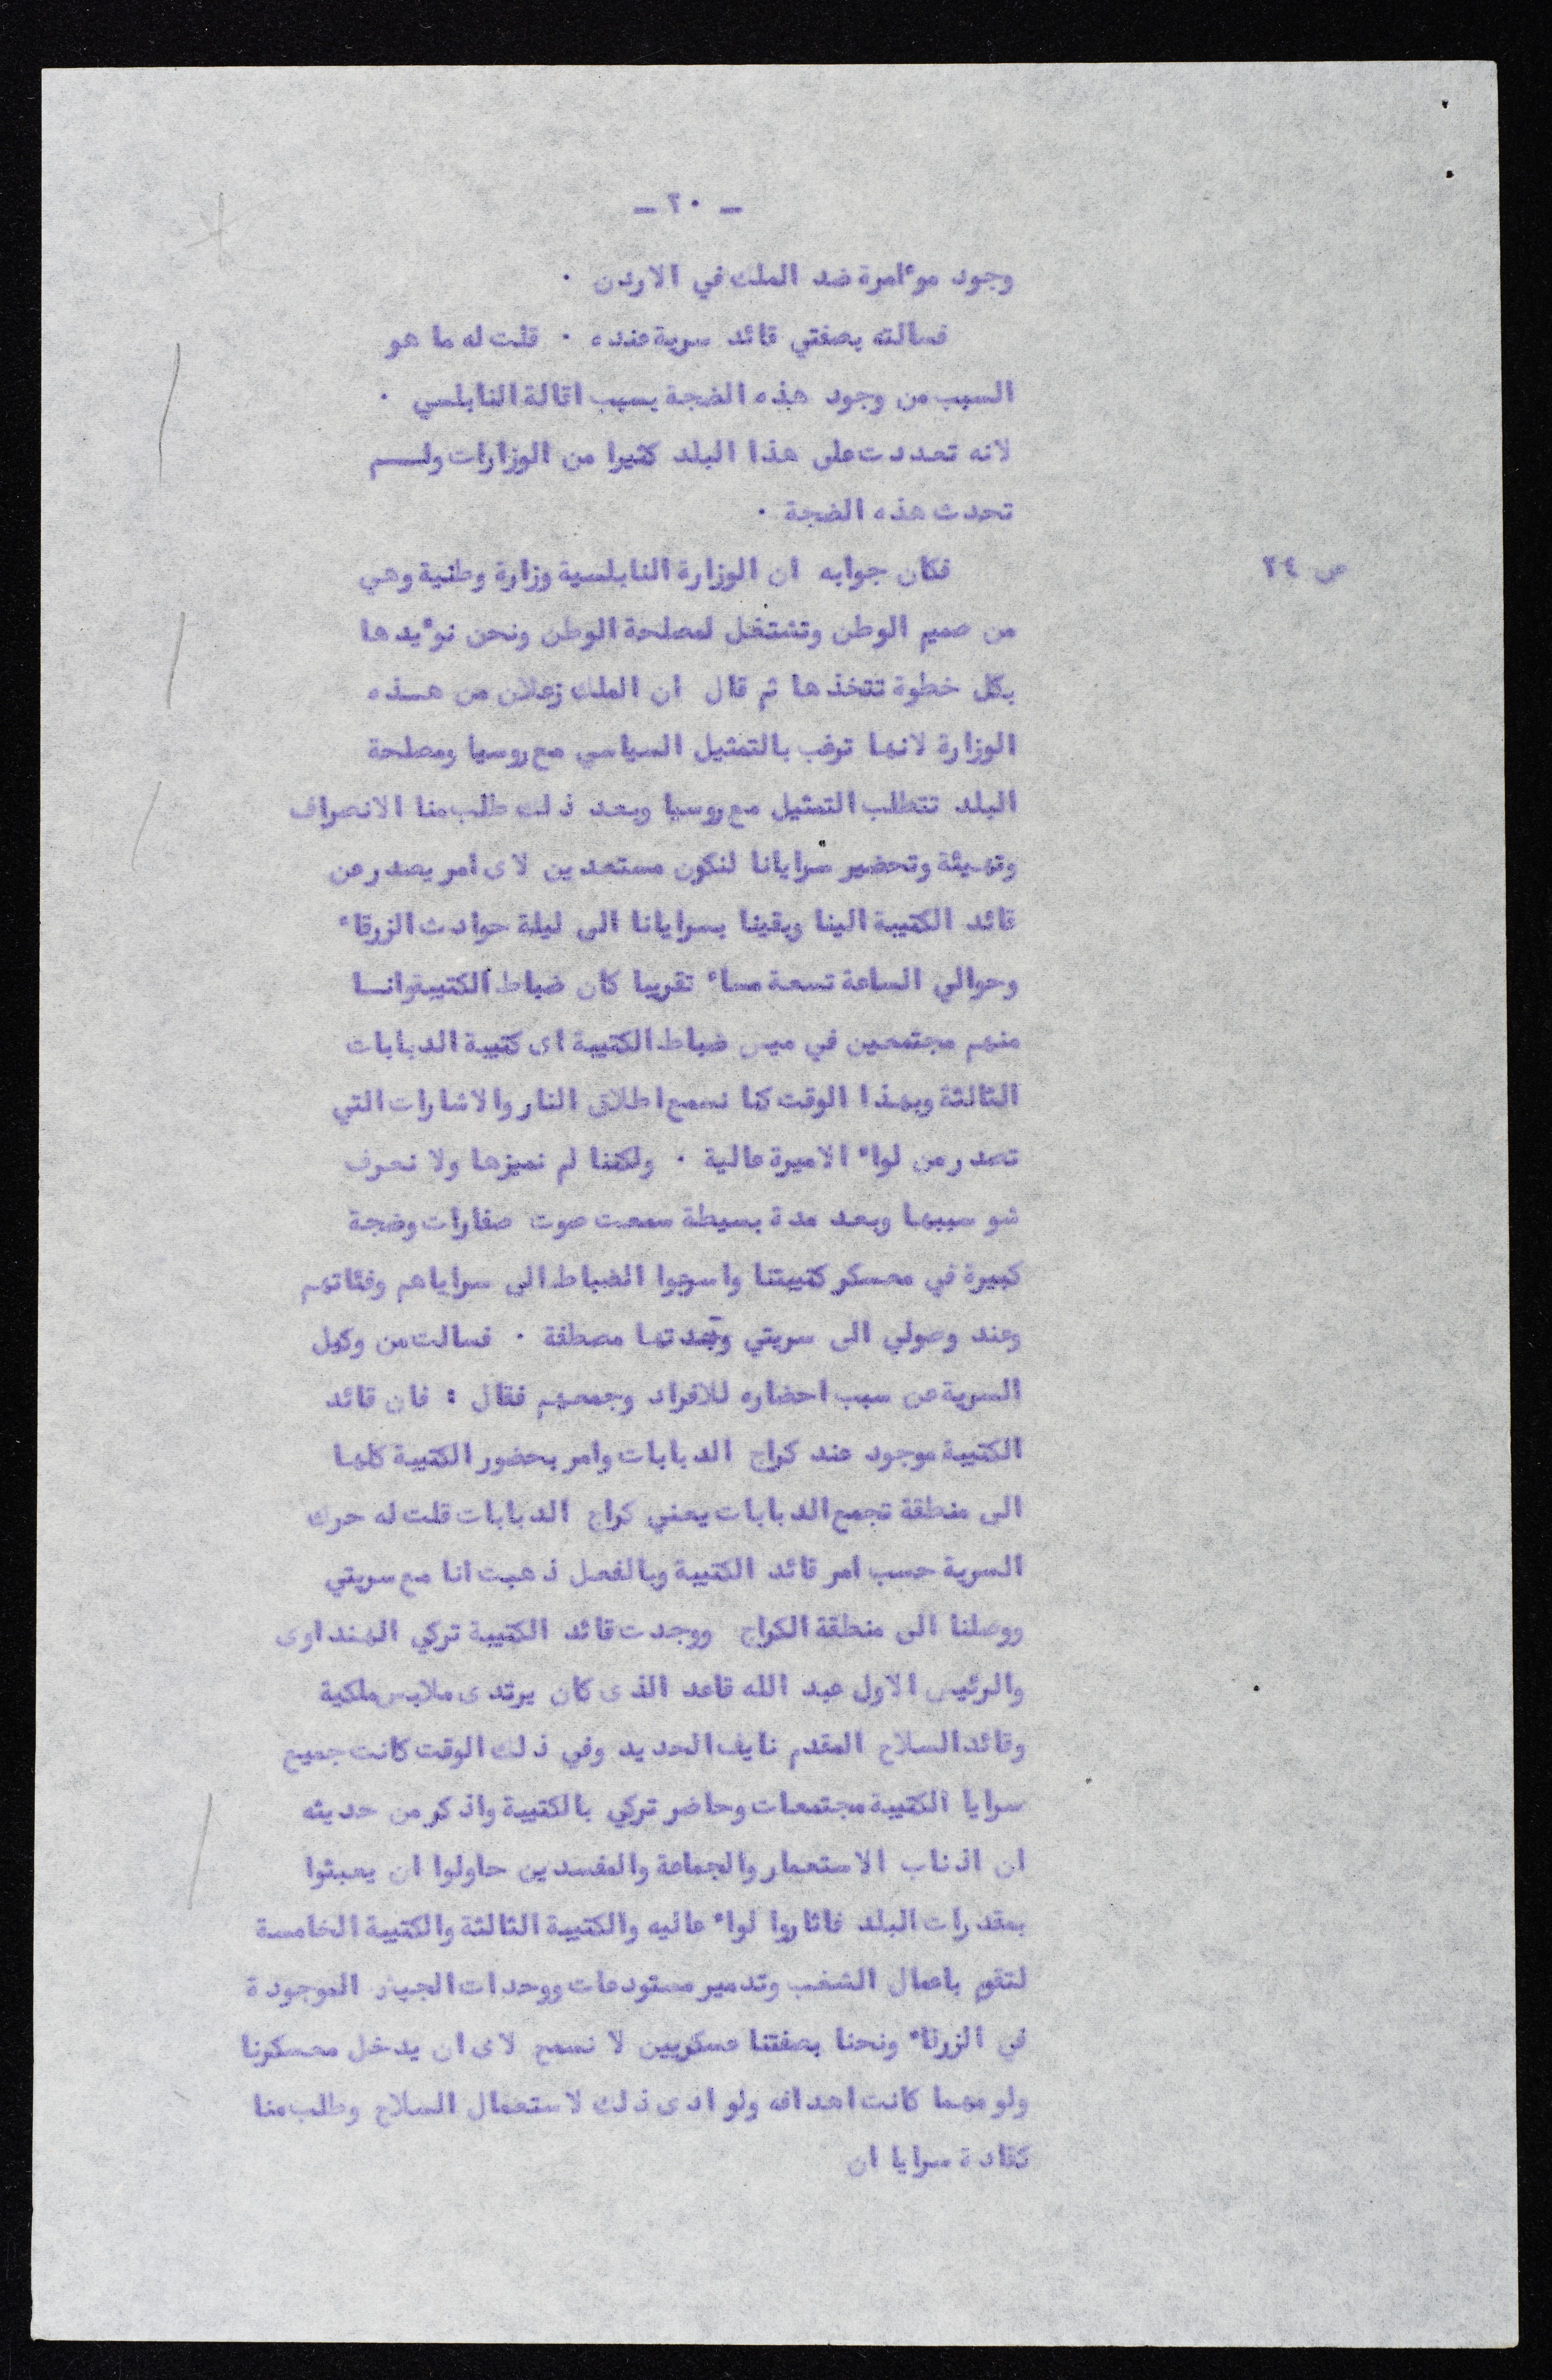 - ٢٠ -
وجود موٴامرة ضد الملك في الاردن .
فسالته بصفتي قائد سرية عنده . قلت له ما هو
السبب من وجود هذه الضجة بسبب اقالة النابلسي .
لانه تعددت على هذا البلد كثيرا من الوزارات ولم
تحدث هذه الضجة .
ص ٢٤
فكان جوابه ان الوزارة النابلسية وزارة وطنية وهي
من صميم الوطن وتشتغل لمصلحة الوطن ونحن نوٴيدها
بكل خطوة تتخذها ثم قال ان الملك زعلان من هذه
الوزارة لانها ترغب بالتمثيل السياسي مع روسيا ومصلحة
البلد تتطلب التمثيل مع روسيا وبعد ذلك طلب منا الانصراف
وتهيئة وتحضير سرايانا لنكون مستعدين لاى امر يصدر من
قائد الكتيبة الينا وبقينا بسرايانا الى ليلة حوادث الزرقاء
وحوالي الساعة تسعة مساء تقريبا كان ضباط الكتيبة وانا
منهم مجتمعين في ميس ضباط الكتيبة اى كتيبة الدبابات
الثالثة وبهذا الوقت كنا نسمع اطلاق النار والاشارات التي
تصدر من لواء الاميرة عالية . ولكننا لم نميزها ولا نعرف
شو سببها وبعد مدة بسيطة سمعت صوت صفارات وضجة
كبيرة في معسكر كتيبتنا واسرعوا الضباط الى سراياهم وفئاتهم
وعند وصولي الى سريتي وجدتها مصطفة . فسالت من وكيل
السرية عن سبب احضاره للافراد وجمعهم فقال : فان قائد
الكتيبة موجود عند كراج الدبابات وامر بحضور الكتيبة كلها
الى منطقة تجمع الدبابات يعني كراج الدبابات قلت له حرك
السرية حسب امر قائد الكتيبة وبالفعل ذهبت انا مع سريتي
ووصلنا الى منطقة الكراج ووجدت قائد الكتيبة تركي الهنداوى
والرئيس الاول عبد الله قاعد الذى كان يرتدى ملابس ملكية
وقائد السلاح المقدم نايف الحديد وفي ذلك الوقت كانت جميع
سرايا الكتيبة مجتمعات وحاضر تركي بالكتيبة واذكر من حديثه
ان اذناب الاستعمار والجماعة والمفسدين حاولوا ان يعبثوا
بمقدرات البلد فاثاروا لواء عاليه والكتيبة الثالثة والكتيبة الخامسة
لتقوم باعمال الشغب وتدمير مستودعات ووحدات الجيش الموجودة
في الزرقاء ونحنا بصفتنا عسكريين لا نسمح لاى ان يدخل معسكرنا
ولو مهما كانت اهدافه ولو ادى ذلك لاستعمال السلاح وطلب منا
كقادة سرايا ان